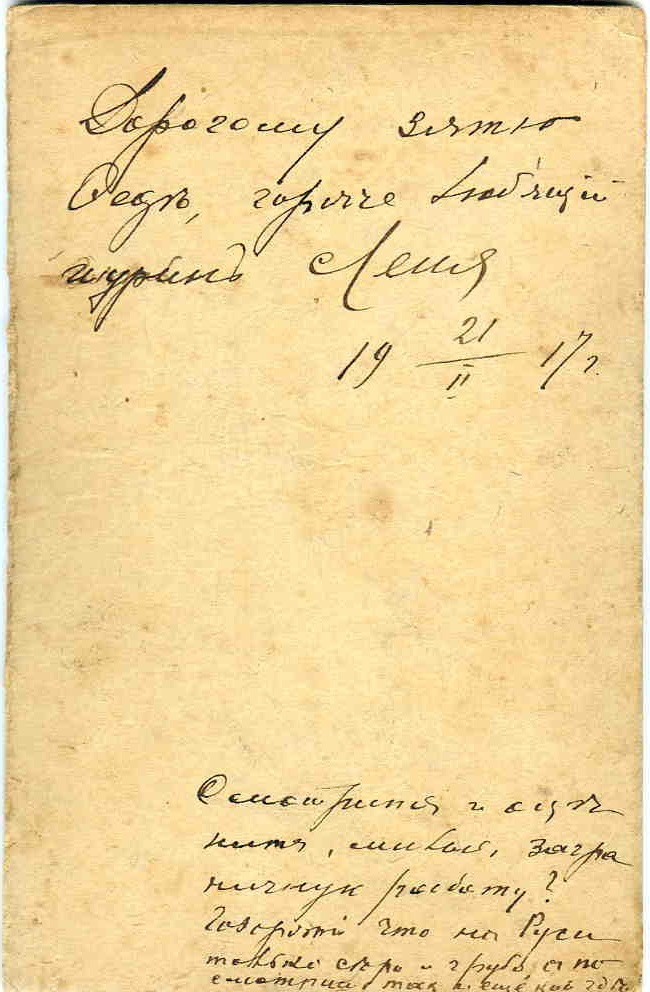 Дорогому зятю
Федѣ, горячо любящій
шуринъ Леня
19 21/II 17 г.
Смотрите и оцѣ
ните, милые, загра
ничную работу?
Говорятъ что на Руси
только сѣро и грубо, а по
смотришь такъ и ещё